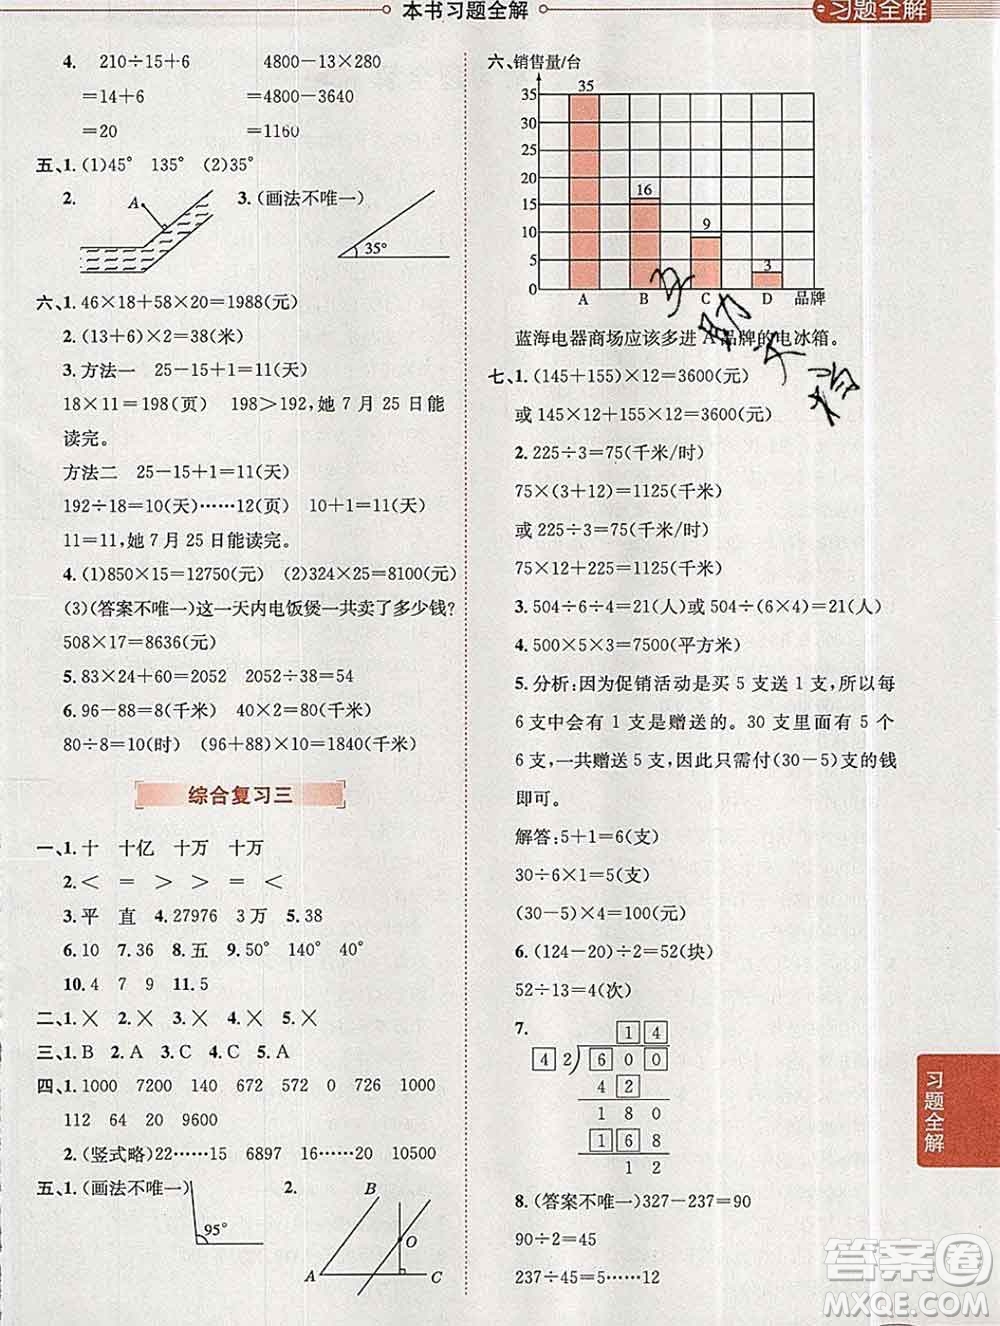 本书习题全解
习题全解
4. 210÷15+6 4800-13×280
=14+6 =4800-3640
=20 =1160
五、1. (1)45° 135° (2)35°
2. 3. (画法不唯一)
A
35°
六、1. 46×18+58×20=1988(元)
2. (13+6)×2=38(米)
3. 方法一 25-15+1=11(天)
18×11=198(页) 198>192,她7月25日能
读完。
方法二 25-15+1=11(天)
192÷18=10(天)……12(页) 10+1=11(天)
11=11,她7月25日能读完。
4. (1)850×15=12750(元) (2)324×25=8100(元)
(3)(答案不唯一)这一天内电饭煲一共卖了多少钱?
508×17=8636(元)
5. 83×24+60=2052 2052÷38=54
6. 96-88=8(千米) 40×2=80(千米)
80÷8=10(时) (96+88)×10=1840(千米)
综合复习三
一、1. 十 十亿 十万 十万
2. < = > > > =
3. 平 直 4. 27976 3万 5. 38
6. 10 7. 36 8. 五 9. 50° 140° 40°
10. 4 7 9 11. 5
二、1. × 2. × 3. × 4. × 5. ×
三、1. B 2. A 3. C 4. C 5. A
四、1. 1000 7200 140 672 572 0 726 1000
112 64 20 9600
2. (竖式略)22……15 6897 16……20 10500
五、1. (画法不唯一) 2.
95°
B
O
A C
六、销售量/台
35
35
30
25
20
16
15
10
9
5
3
0
A B C D 品牌
蓝海电器商场应该多进A品牌的电冰箱。
七、1. (145+155)×12=3600(元)
或145×12+155×12=3600(元)
2. 225÷3=75(千米/时)
75×(3+12)=1125(千米)
或225÷3=75(千米/时)
75×12+225=1125(千米)
3. 504÷6÷4=21(人)或504÷(6×4)=21(人)
4. 500×5×3=7500(平方米)
5. 分析:因为促销活动是买5支送1支,所以每
6支中会有1支是赠送的。30支里面有5个
6支,一共赠送5支,因此只需付(30-5)支的钱
即可。
解答:5+1=6(支)
30÷6×1=5(支)
(30-5)×4=100(元)
6. (124-20)÷2=52(块)
52÷13=4(次)
7.
1 4
4 2 6 0 0
4 2
1 8 0
1 6 8
1 2
8. (答案不唯一)327-237=90
90÷2=45
237÷45=5……12
习题全解
答案圈
MXQE.COM